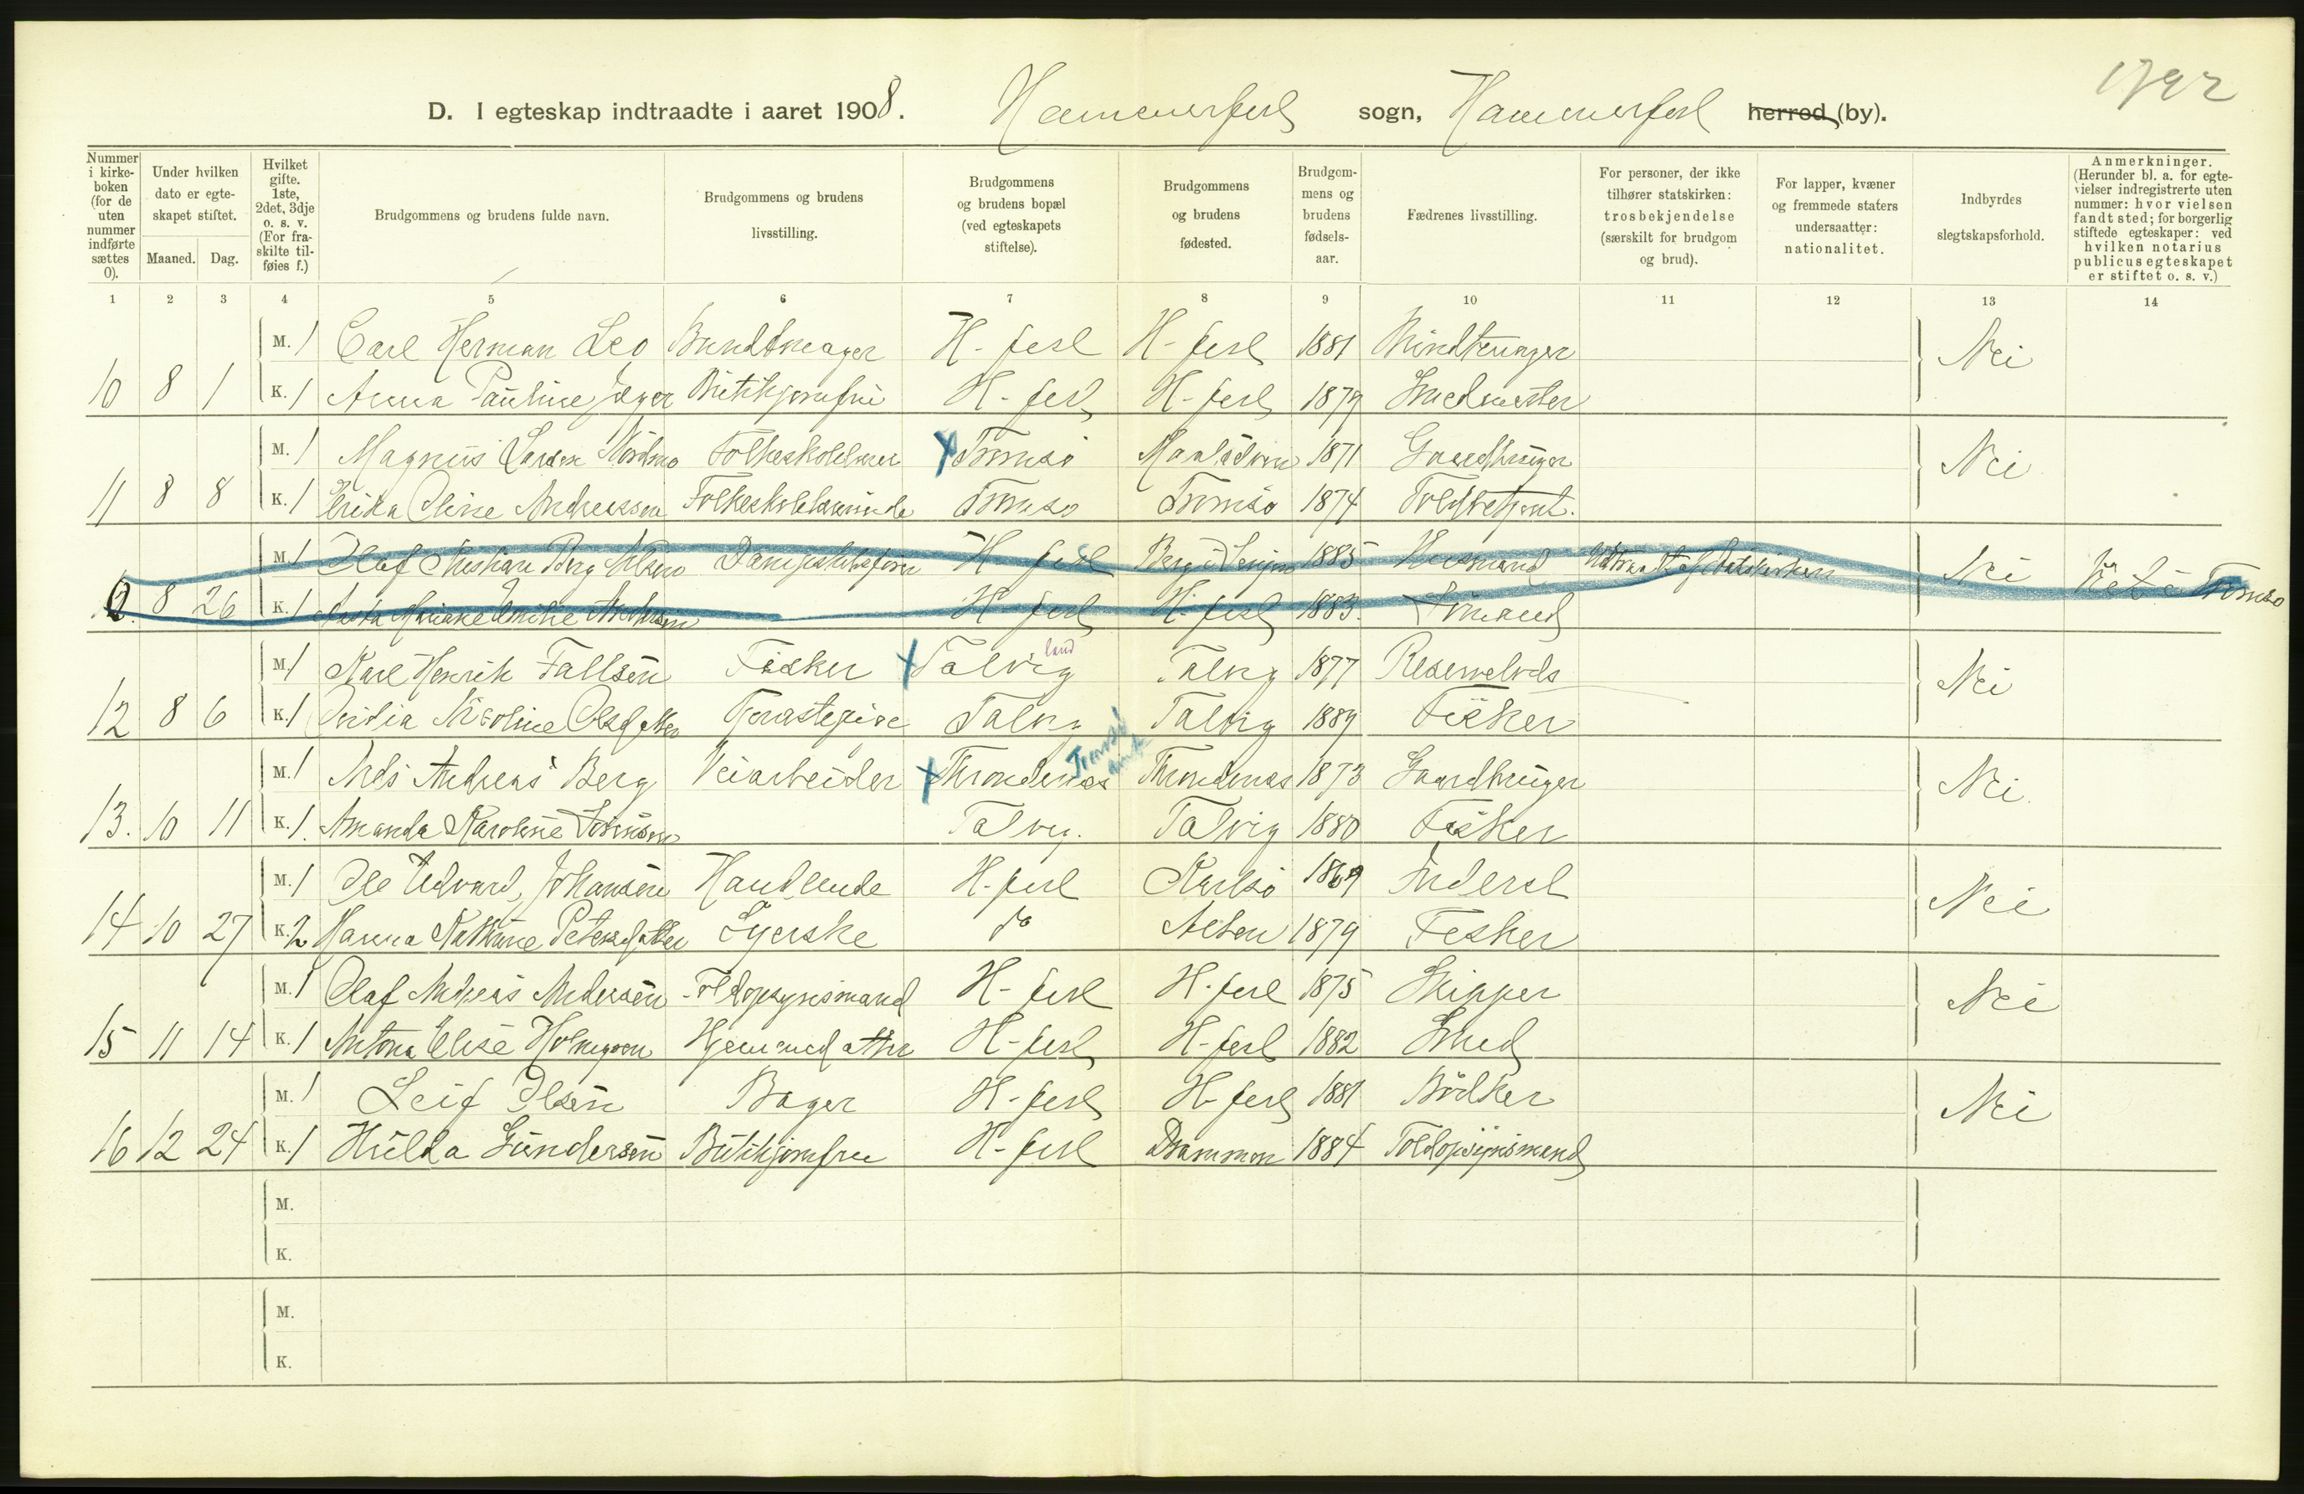 1792
D. I egteskap indtraadte i aaret 1908. Hammerfest sogn, Hammerfest herred (by).
Nummer i kirkeboken (for de uten nummer indførte sættes 0).
Under hvilken dato er egteskapet stiftet.
Maaned. Dag.
Hvilket gifte. 1ste, 2det, 3dje o. s. v. (For fraskilte tilføies f.)
Brudgommens og brudens fulde navn.
Brudgommens og brudens livsstilling.
Brudgommens og brudens bopæl (ved egteskapets stiftelse).
Brudgommens og brudens fødested.
Brudgommens og brudens fødselsaar.
Fædrenes livsstilling.
For personer, der ikke tilhører statskirken: trosbekjendelse (særskilt for brudgom og brud).
For lapper, kvæner og fremmede staters undersaatter: nationalitet.
Indbyrdes slegtskapsforhold.
Anmerkninger. (Herunder bl. a. for egtevielser indregistrerte uten nummer: hvor vielsen fandt sted; for borgerlig stiftede egteskaper: ved hvilken notarius publicus egteskapet er stiftet o. s. v.)
1 2 3 4 5 6 7 8 9 10 11 12 13 14
M. 1 Carl Herman Leo Bundtmager H-fest H-fest 1881 Nei
10 8 1 K. 1 Anna Pauline Jæger Butikjomfru H-fest H-fest 1879 Smedmester
M. 1 Magnus Larsen Nordmo Folkeskolelærer Tromsø Maalselven 1871 Gaardbruger Nei
11 8 8 K. 1 Erika Oline Andreassen Folkeskolelærerinde Tromsø Tromsø 1874 Toldbetjent.
M. 1 Olaf Kristian Berg Nilsen H-fest Berg i Senjen 1885 Husmand Udtraadt af Statskirken Nei Viet i Tromsø
0. 8 26 K. 1 H-fest H-fest 1883.
M. 1 Karl Henrik Fallsen Fisker Talvig land Talvig 1877 Nei
12 8 6 K. 1 Nicoline Olsdatter Tjenestepige Talvig Talvig 1889 Fisker
M. 1 Nils Andreas Berg Veiarbeider Throndenæs Tromsø amt Throndenæs 1873 Gaardbruger Nei
13. 10 11 K. 1. Amanda Karoline Talvig. Talvig 1880 Fisker
M. 1 Ole Edvard Johansen Handlende H-fest Karlsø 1869 Inderst Nei
14 10 27 K. 2 Hanna Kathrine Petersdatter Syerske do Alten 1879 Fisker
M. 1 Olaf Andreas Andersen Toldopsynsmand H-fest H-fest 1875 Skipper Nei
15 11 14 K. 1 Antona Elise Holmgren Hjemmedatter H-fest H-fest 1882 Smed
M. 1 Leif Olsen Bager H-fest H-fest 1881 Bødker Nei
16 12 24 K. 1 Hulda Gundersen Butikjomfru H-fest Drammen 1884 Toldopsynsmand
M.
K.
M.
K.